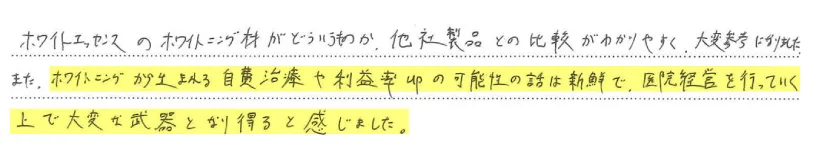 ホワイトエッセンスのホワイトニング材がどういうものか、他社製品との比較がわかりやすく、大変参考になりました。
また、ホワイトニングから生まれる自費治療や利益率upの可能性の話は新鮮で、医院経営を行っていく
上で大変な武器となり得ると感じました。